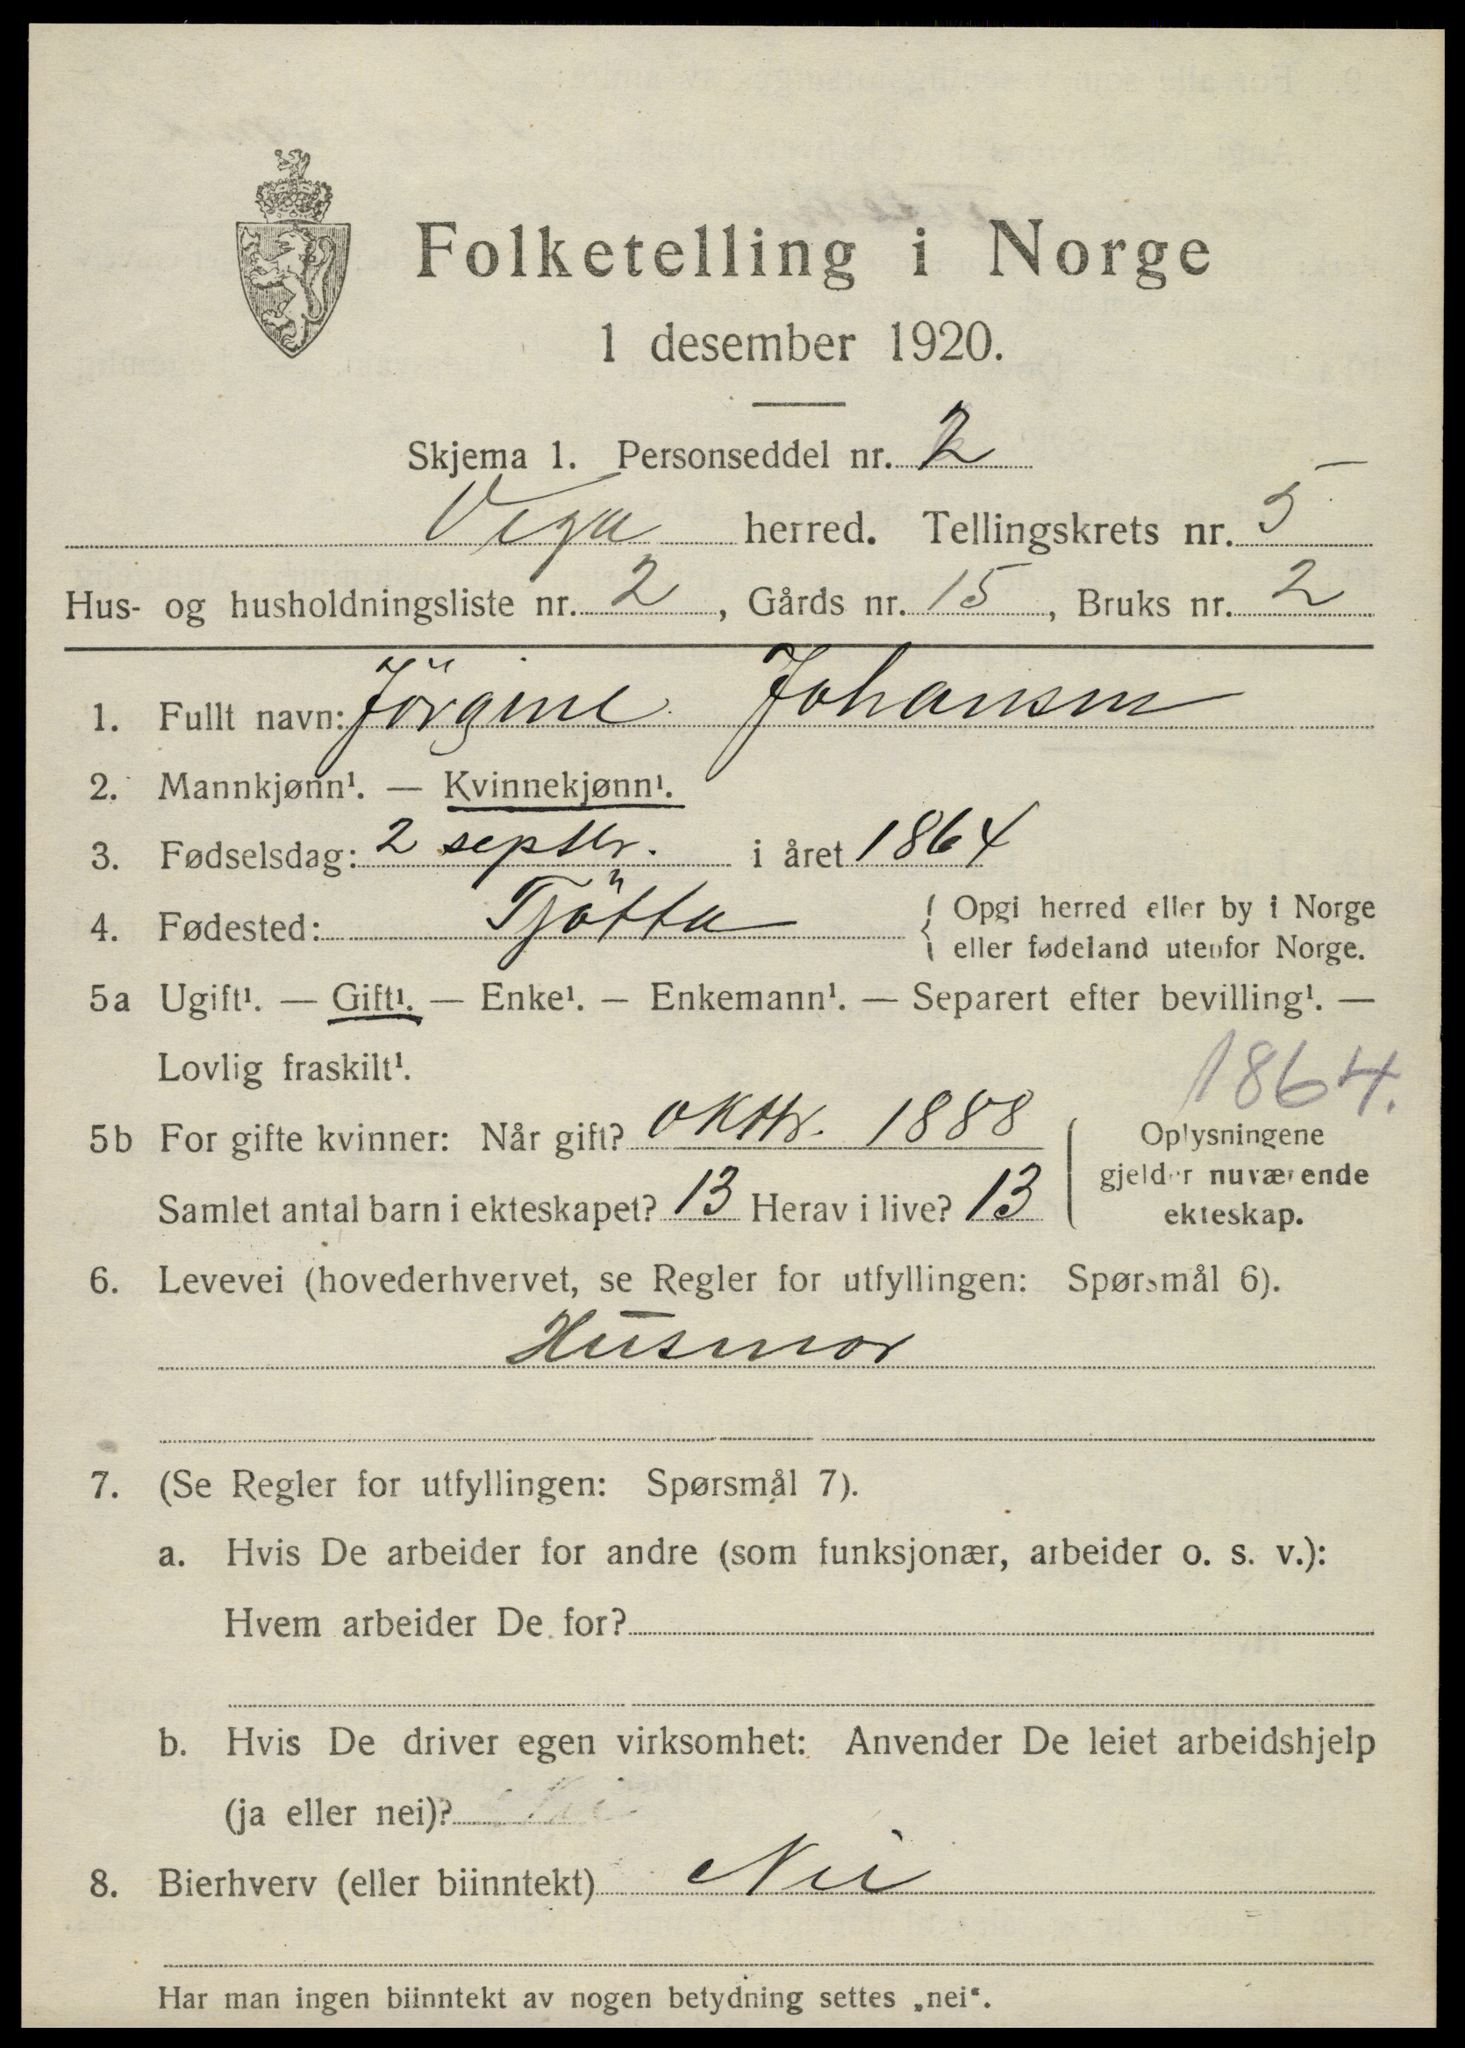 Folketelling i Norge
1 desember 1920.
Skjema 1. Personseddel nr. 2
Vega herred. Tellingskrets nr. 5
Hus- og husholdningsliste nr. 2, Gårds nr. 15, Bruks nr. 2
1. Fullt navn: Jörgine Johansen
2. Mannkjønn¹. — Kvinnekjønn¹.
3. Fødselsdag: 2 septbr. i året 1864
4. Fødested: Tjötta { Opgi herred eller by i Norge
eller fødeland utenfor Norge.
5a Ugift¹. — Gift¹. — Enke¹. — Enkemann¹. — Separert efter bevilling¹. —
Lovlig fraskilt¹.
1864.
5b For gifte kvinner: Når gift? oktbr. 1888
Samlet antal barn i ekteskapet? 13 Herav i live? 13
Oplysningene
gjelder nuværende
ekteskap.
6. Levevei (hovederhvervet, se Regler for utfyllingen: Spørsmål 6).
Husmor
7. (Se Regler for utfyllingen: Spørsmål 7).
a. Hvis De arbeider for andre (som funksjonær, arbeider o. s. v.):
Hvem arbeider De for?
b. Hvis De driver egen virksomhet: Anvender De leiet arbeidshjelp
(ja eller nei)? Nei
8. Bierhverv (eller biinntekt) Nei
Har man ingen biinntekt av nogen betydning settes „nei“.